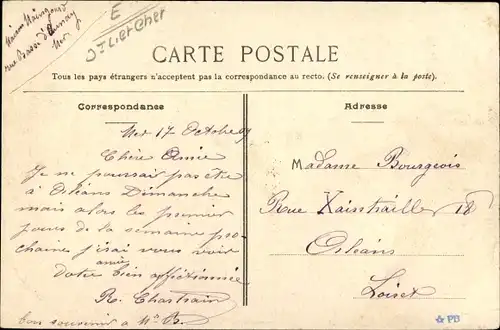 E
Jt Lier Cher
rue Basse d'Aunay
Mer
CARTE POSTALE
Tous les pays étrangers n'acceptent pas la correspondance au recto. (Se renseigner à la poste).
Correspondance
Mer 17 Octobre 09
Chère Amie
Je ne pourrai pas être
à Orléans Dimanche
mais alors les premier
jours de la semaine pro-
chaine j'irai vous voir
amie
Votre bien affétionnée
R. Chartrain
bon souvenir à Mr B.
Adresse
Madame Bourgeois
Rue Xaintraille 18
Orléans
Loiret
PB